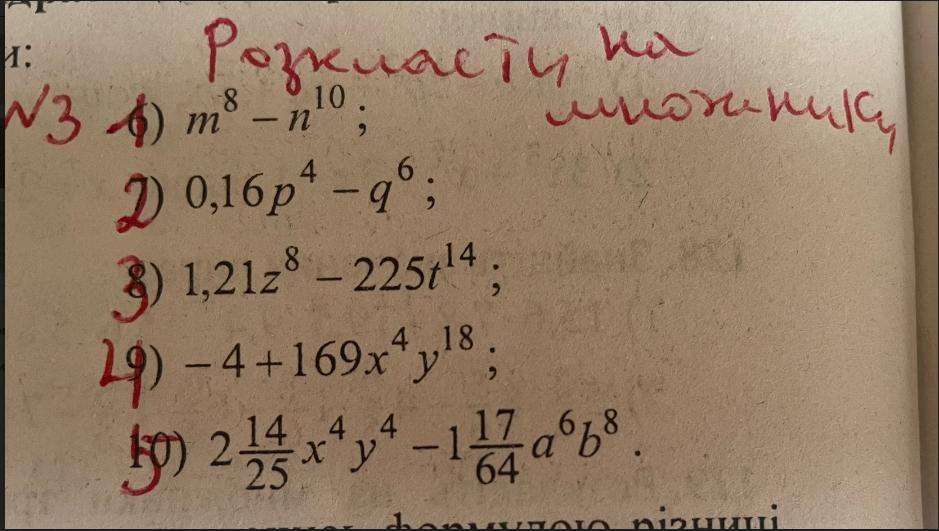 и:
Розкласти на
множники
№3 1) m⁸ − n¹⁰ ;
2) 0,16p⁴ − q⁶ ;
3) 1,21z⁸ − 225t¹⁴ ;
4) − 4 + 169x⁴y¹⁸ ;
5) 2 14/25 x⁴y⁴ − 1 17/64 a⁶b⁸ .
формулою різниці